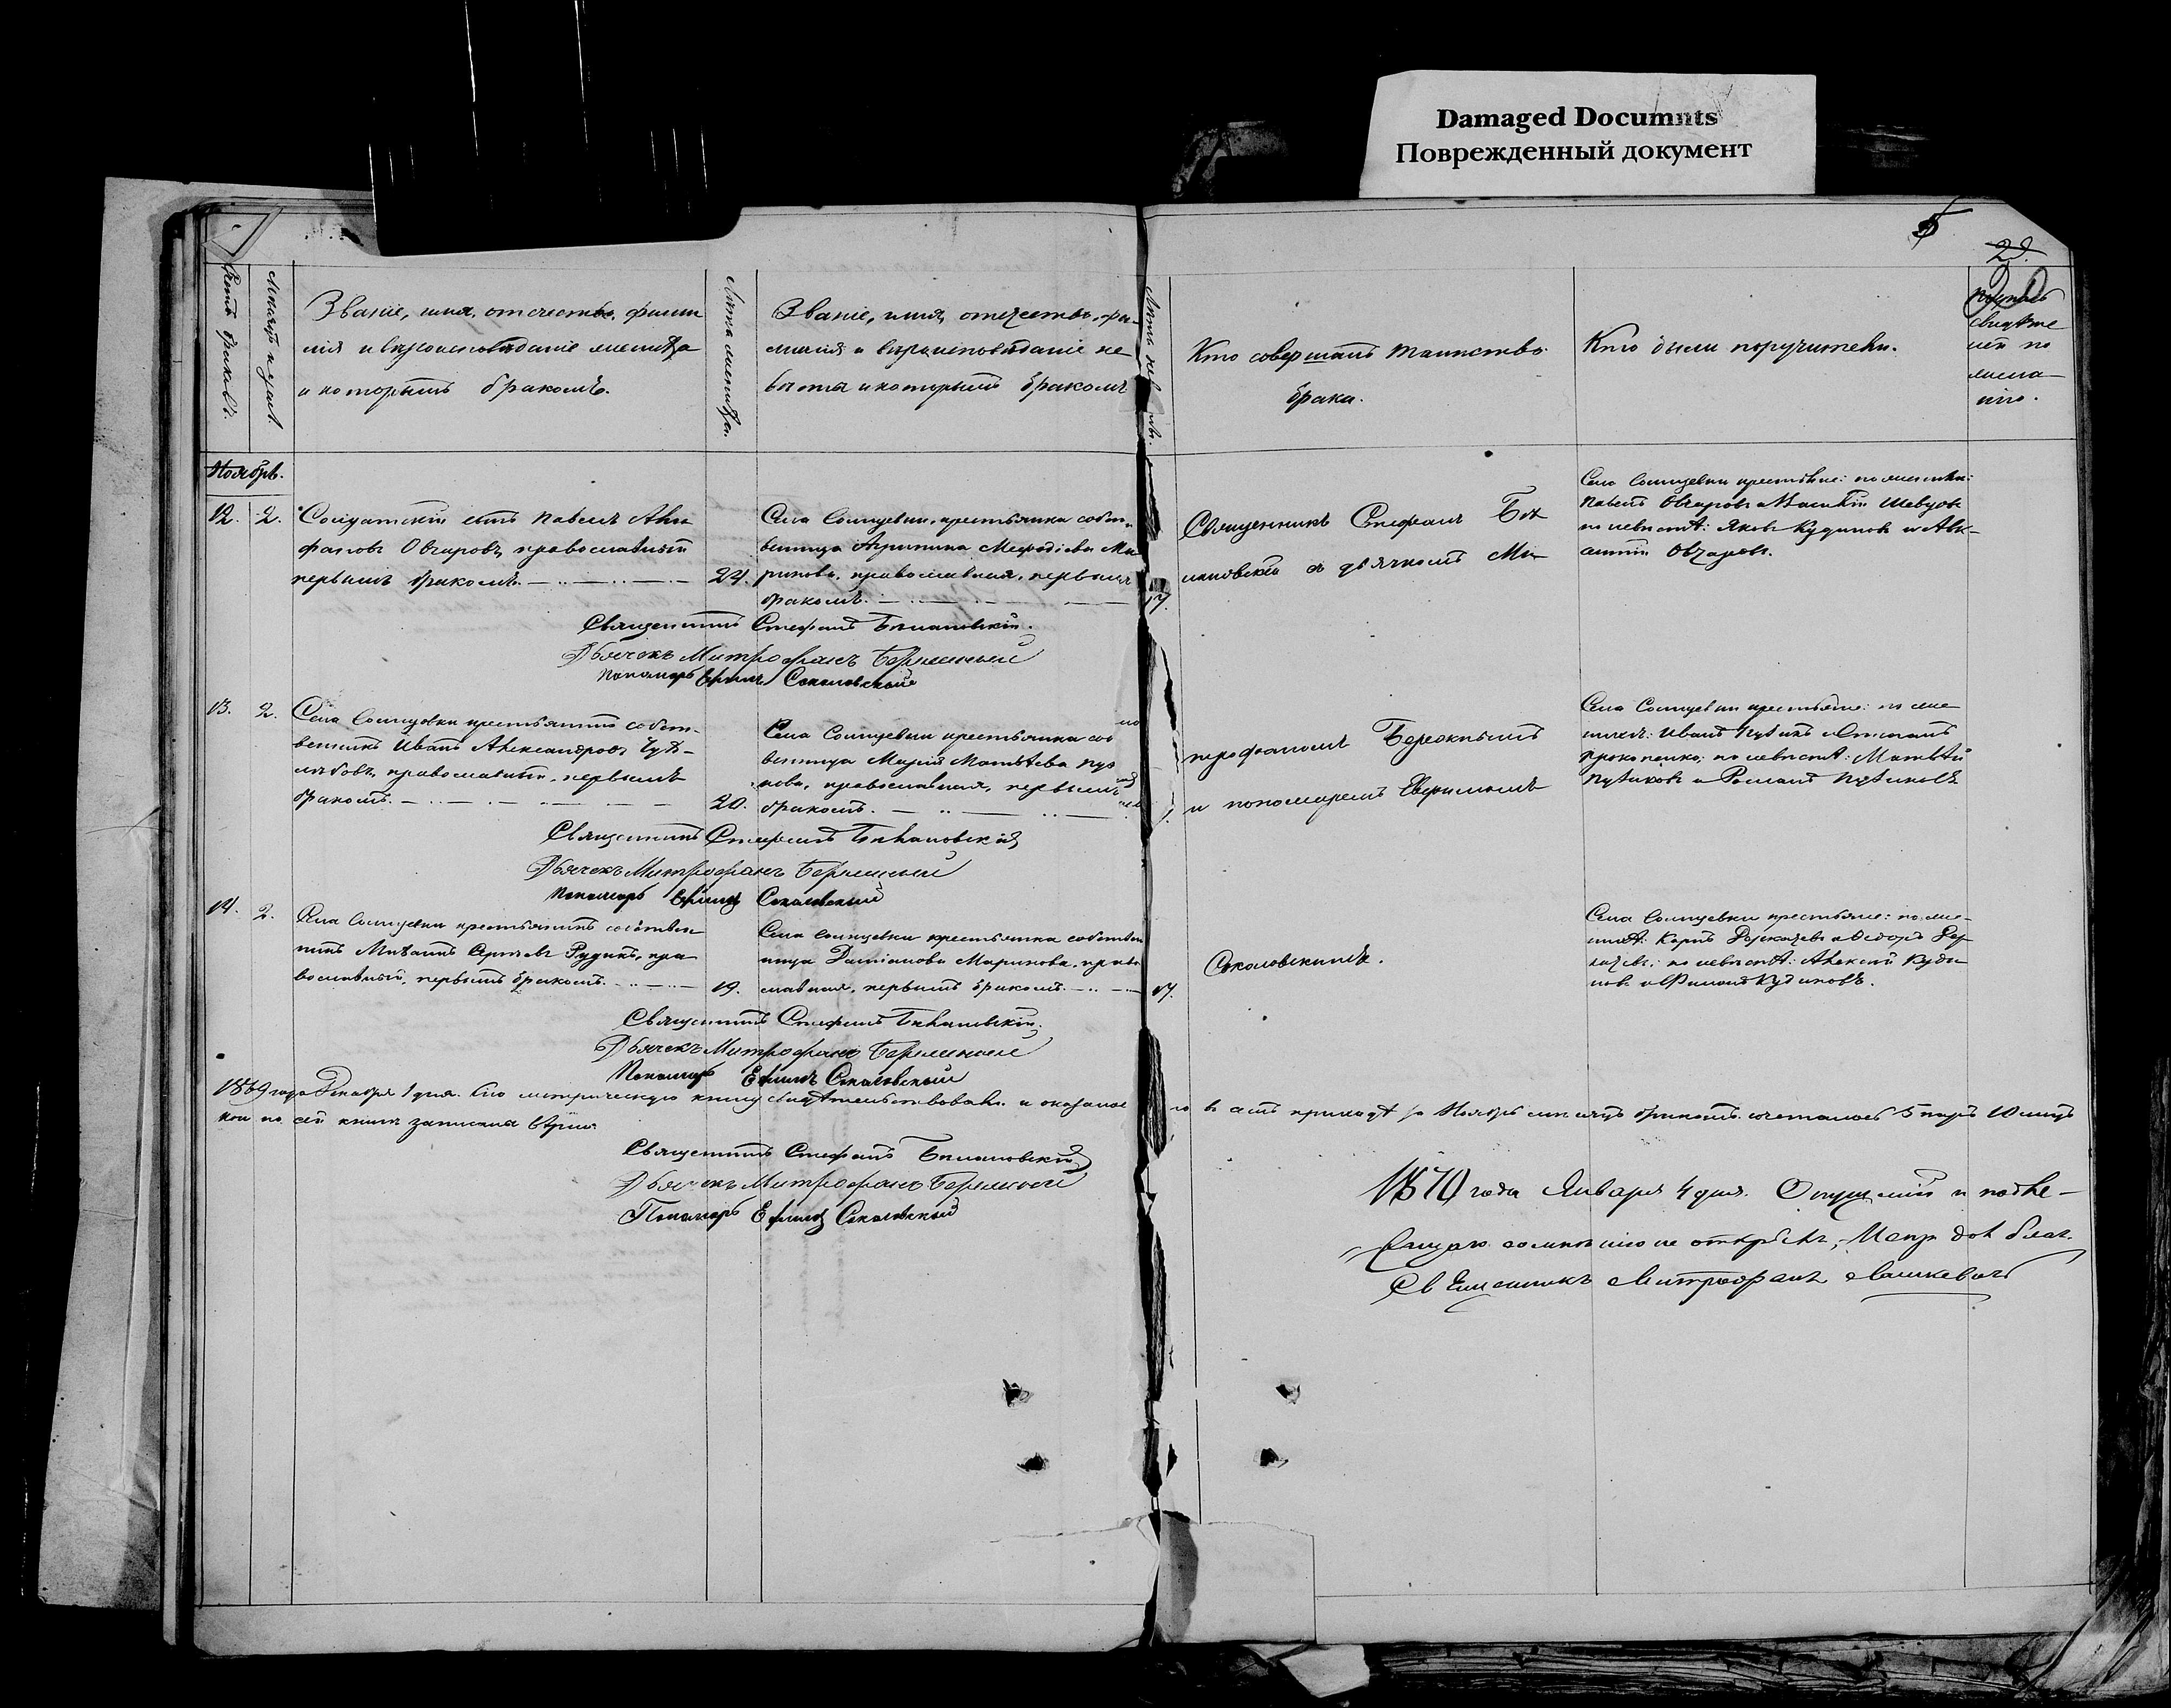 Damaged Documnts
Поврежденный документ
5
Счетъ браковъ.
Мѣсяцъ и день.
Званіе, имя, отчество, фами
лія и вѣроисповѣданіе жениха
и которымъ бракомъ.
Лѣта жениха.
Званіе, имя, отечество, фа-
милія и вѣроисповѣданіе не
вѣсты и которымъ бракомъ
Кто совершалъ таинство
брака.
Кто были поручители.
свидѣте
лей по
Ноябрь.
12. 2. Солдатскій сынъ Павелъ
Овчаровъ, православный
первымъ бракомъ. 24.
Села Солнцевки, крестьянка собст-
венница Агрипина Мефодіева Ма
ринова, православная, первымъ
бракомъ. 17.
Священникъ Стефанъ Бѣл
лановскій съ дьячкомъ Ми-
Села Солнцевки крестьяне: по женихѣ:
Павелъ Овчаровъ и Василій Шевцовъ
по невѣстѣ: Яковъ Кудиновъ и
Овчаровъ.
Священникъ Стефанъ Бѣлановскій.
Дьячекъ Митрофанъ
Пономарь Ефимъ Соколовскій
13. 2. Села Солнцовки крестьянинъ собст-
венникъ Иванъ Александровъ
православный, первымъ
бракомъ. 20.
Села Солнцевки крестьянка соб
венница Марія Матвѣева
нова, православная, первымъ
бракомъ.
трофаномъ
и пономаремъ Ефимомъ
Села Солнцевки крестьяне: по же
нихѣ: Иванъ
Прокопенко; по невѣстѣ: Матвѣй
и Романъ
Священникъ Стефанъ Бѣлановскій
Дьячекъ Митрофанъ
Пономарь Ефимъ Соколовскій
14. 2. Села Солнцевки крестьянинъ собствен
никъ Михаилъ Сергѣевъ Рудикъ, пра
вославный, первымъ бракомъ. 19.
Села Солнцевки крестьянка собствен
ница Даміанова Маринова, право
славная, первымъ бракомъ. 17.
Соколовскимъ.
Села Солнцевки крестьяне: по же-
нихѣ: Карпъ и Ѳедоръ
по невѣстѣ: Алексѣй Куди
новъ и Филипъ Кудиновъ.
Священникъ Стефанъ Бѣлановскій.
Дьячекъ Митрофанъ
Пономарь Ефимъ Соколовскій
1869 года Декабря 1 дня. Сію метрическую книгу свидѣтельствовали и оказалос но въ семъ приходѣ за Ноябрь мѣсяцъ бракомъ сочеталось 5 паръ
кои по сей книгѣ записаны вѣрно.
Священникъ Стефанъ Бѣлановскій
Дьячекъ Митрофанъ
Пономарь Ефимъ Соколовскій
1870 года Января 4 дня. Опущеній и подле-
жащаго сомнѣнію не открылъ,
Священникъ Митрофанъ